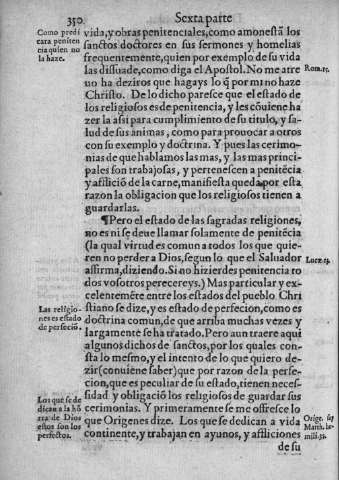 350
Sexta parte
Como predi
cara peniten
cia quien no
la haze.
vida, y obras penitenciales, como amonestã los
sanctos doctores en sus sermones y homelias
frequentemente, quien por exemplo de su vida
las dissuade, como diga el Apostol. No me atre
uo ha deziros que hagays lo q̃ por mi no haze
Christo. De lo dicho paresce que el estado de
los religiosos es de penitencia, y les cõuiene ha
zer la assi para cumplimiento de su titulo, y sa-
lud de sus animas, como para prouocar a otros
con su exemplo y doctrina. Y pues las cerimo-
nias de que hablamos las mas, y las mas princi-
pales son trabajosas, y pertenescen a penitẽcia
y aflició de la carne, manifiesta queda por esta
razon la obligacion que los religiosos tienen a
guardarlas.
Rom. 15.
¶Pero el estado de las sagradas religiones,
no es ni se deue llamar solamente de penitẽcia
(la qual virtud es comun a todos los que quie-
ren no perder a Dios, segun lo que el Saluador
affirma, diziendo. Si no hizierdes penitencia to
dos vosotros perecereys.) Mas particular y ex-
celentemẽte entre los estados del pueblo Chri
stiano se dize, y es estado de perfecion, como es
doctrina comun, de que arriba muchas vezes y
largamente se ha tratado. Pero aun traere aqui
algunos dichos de sanctos, por los quales con-
sta lo mesmo, y el intento de lo que quiero de-
zir (conuiene saber) que por razon de la perfe-
cion, que es peculiar de su estado, tienen neces-
sidad y obligació los religiosos de guardar sus
cerimonias. Y primeramente se me offresce lo
que Origenes dize. Los que se dedican a vida
continente, y trabajan en ayunos, y afliciones
de su
Luce. 13.
Las religio-
nes es estado
de perfeció.
Los que se de
dican a la hõ
rra de Dios
estos son los
perfectos.
Orige. sup
Matth. ho-